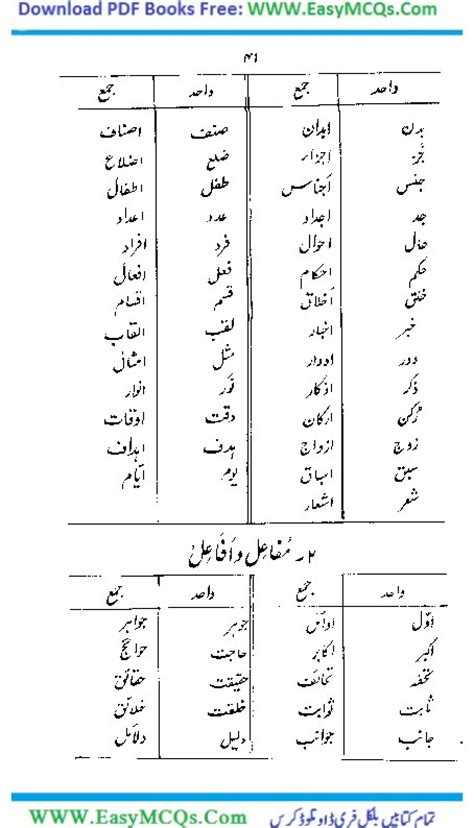 Download PDF Books Free: WWW.EasyMCQs.Com
۴۱
واحد جمع واحد جمع
بدن ابدان صنف اصناف
جُز اجزاء ضلع اضلاع
جنس اَجناس طفل اطفال
جد اجداد عدد اعداد
حال احوال فرد افراد
حکم احکام فعل افعال
خلق اَخلاق قسم اقسام
خبر اخبار لقب القاب
دور ادوار مثل امثال
ذکر اذکار نور انوار
رُکن ارکان وقت اوقات
زوج ازواج ہدف اہداف
سبق اسباق یوم ایّام
شعر اشعار
۲۔ مَفاعِل و اَفَاعِل
واحد جمع واحد جمع
اوّل اوائل جوہر جواہر
اکبر اکابر حاجت حوائج
تحفہ تحائف حقیقت حقائق
ثابت ثوابت خلقت خلائق
جانب جوانب دلیل دلائل
WWW.EasyMCQs.Com تمام کتابیں بالکل فری ڈاونلوڈ کریں